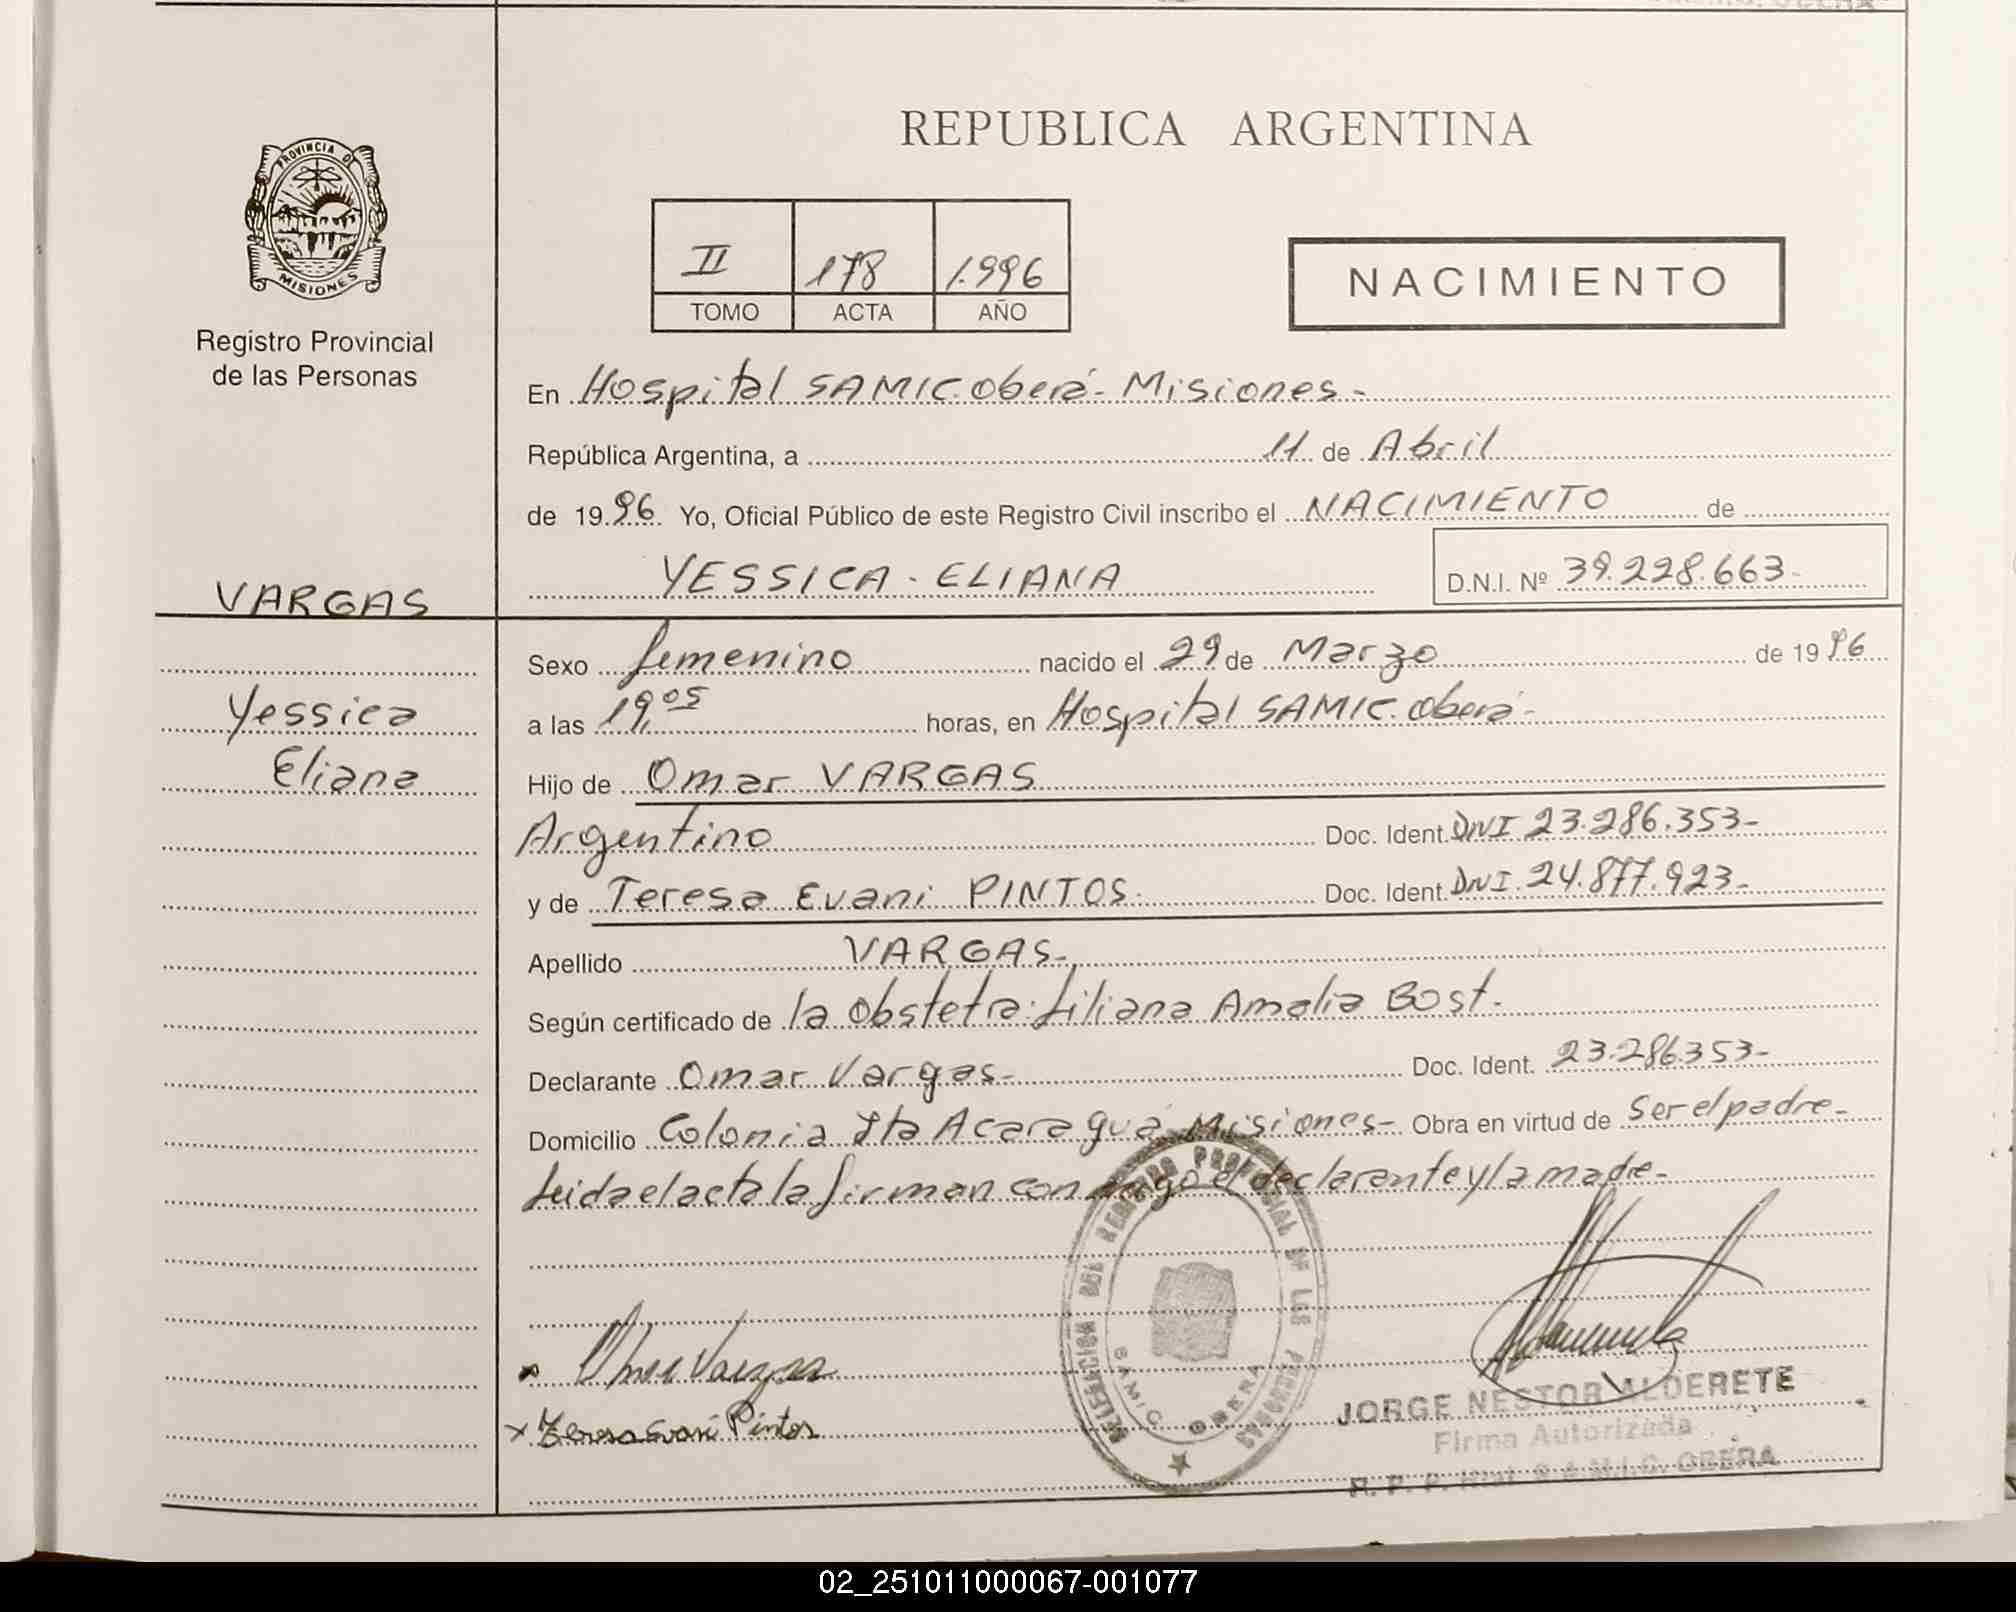 REPUBLICA ARGENTINA
PROVINCIA D
MISIONES
Registro Provincial
de las Personas
II 178 1.996
TOMO ACTA AÑO
NACIMIENTO
En Hospital SAMIC. Oberá - Misiones -
República Argentina, a 11 de Abril
de 19 96. Yo, Oficial Público de este Registro Civil inscribo el NACIMIENTO de
YESSICA - ELIANA D.N.I. Nº 39.228.663 -
VARGAS
Yessica
Eliana
Sexo femenino nacido el 29 de Marzo de 19 96
a las 19,05 horas, en Hospital SAMIC. Oberá -
Hijo de Omar VARGAS
Argentino Doc. Ident. DNI 23.286.353 -
y de Teresa Evani PINTOS. Doc. Ident. DNI. 24.877.923 -
Apellido VARGAS -
Según certificado de la Obstetra: Liliana Amalia Bost.
Declarante Omar Vargas - Doc. Ident. 23.286.353 -
Domicilio Colonia Ita Acaragua Misiones - Obra en virtud de Ser el padre -
Leida el acta la firman con migo el declarante y la madre -
DELEGACION DEL REGISTRO PROVINCIAL DE LAS PERSONAS
SAMIC OBERA
Omar Vargas
x Teresa Evani Pintos
JORGE NESTOR ALDERETE
Firma Autorizada
R. P. P. Htal. S.A.M.I.C. OBERA
02_251011000067-001077